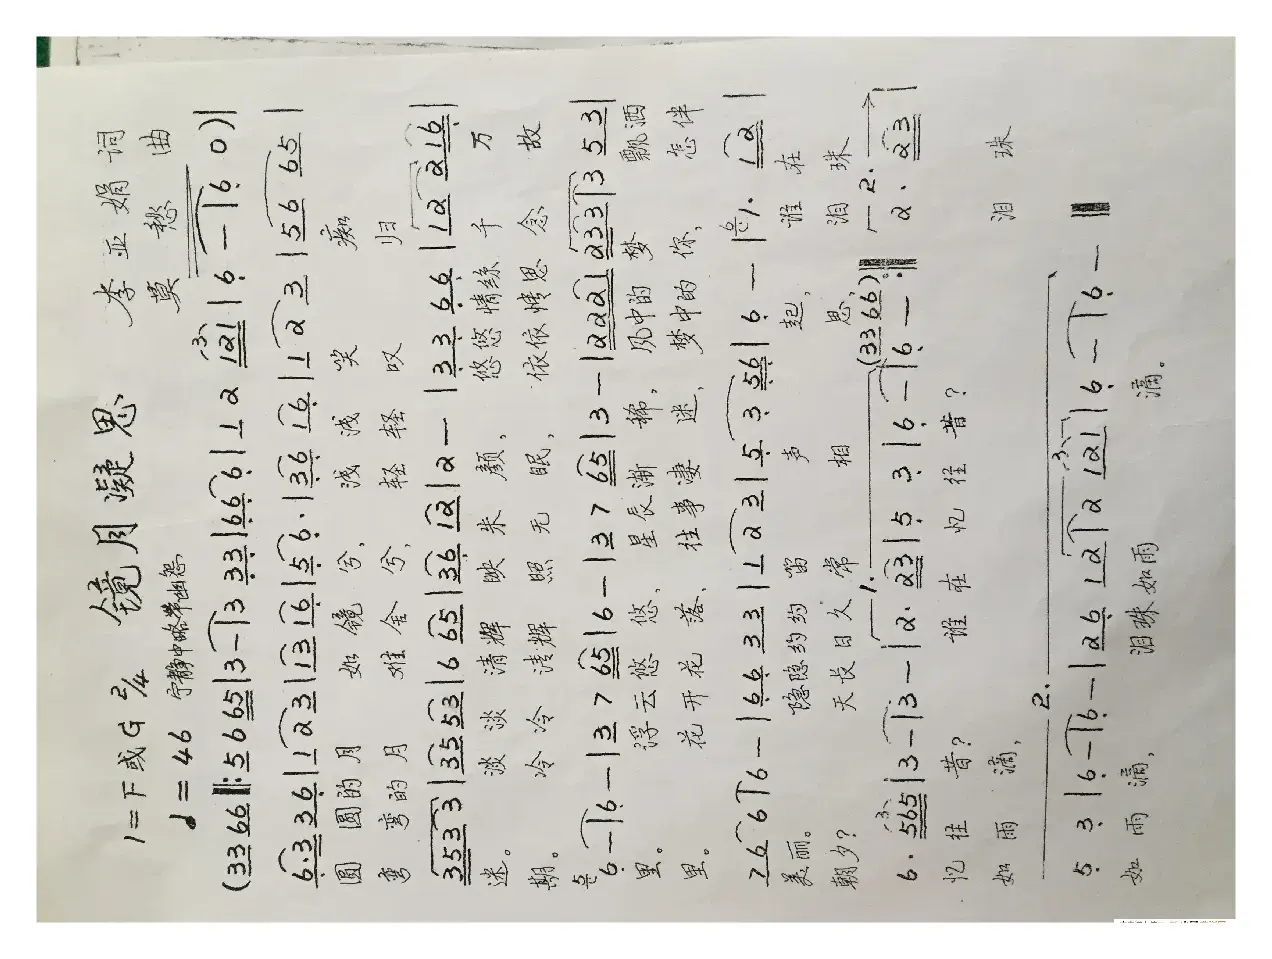 镜月凝思
李亚娟 词
莫愁 曲
1=F或G 2/4
♩=46 宁静中略带幽怨
(33 66 ‖: 5 6 65 | 3 — | 3 33 | 66 6 | 1 2 121 | 6 — | 6 0) |
6·3 36 | 1 2 3 | 13 16 | 56· | 36 16 | 1 2 3 | 56 65 |
圆圆的月 如镜兮, 浅浅笑 痴
弯弯的月 难舍兮, 轻轻叹 归
353 3 | 35 53 | 6 65 | 36 12 | 2 — | 33 66 | 12 216 |
迷。 淡淡清辉映朱颜, 悠悠情丝千万
期。 冷冷清辉照无眠, 依依情思念故
6 — | 6 — | 37 65 | 6 — | 37 65 | 3 — | 2221 233 | 3 53 |
里。 浮云悠悠, 星辰渐稀, 风中的梦 飘洒
里。 花开花落, 往事凄迷, 梦中的你, 怎伴
76 6 | 6 — | 66 33 | 1 2 3 | 5 3 56 | 6 — | 0/· 12 |
美丽。 隐隐约约笛声起, 谁在
朝夕? 天长日久常相思, 泪珠
6· 565 | 3 — | 3 — | 1. 2· 23 | 5 3 | 6 — | 6 — (33 66) :‖ 2. 2· 23 |
忆往昔? 谁在忆往昔?
如雨滴, 泪珠
2. 5 3 | 6 — | 6 — | 26 12 | 2 121 | 6 — | 6 — ‖
如雨滴, 泪珠如雨滴。